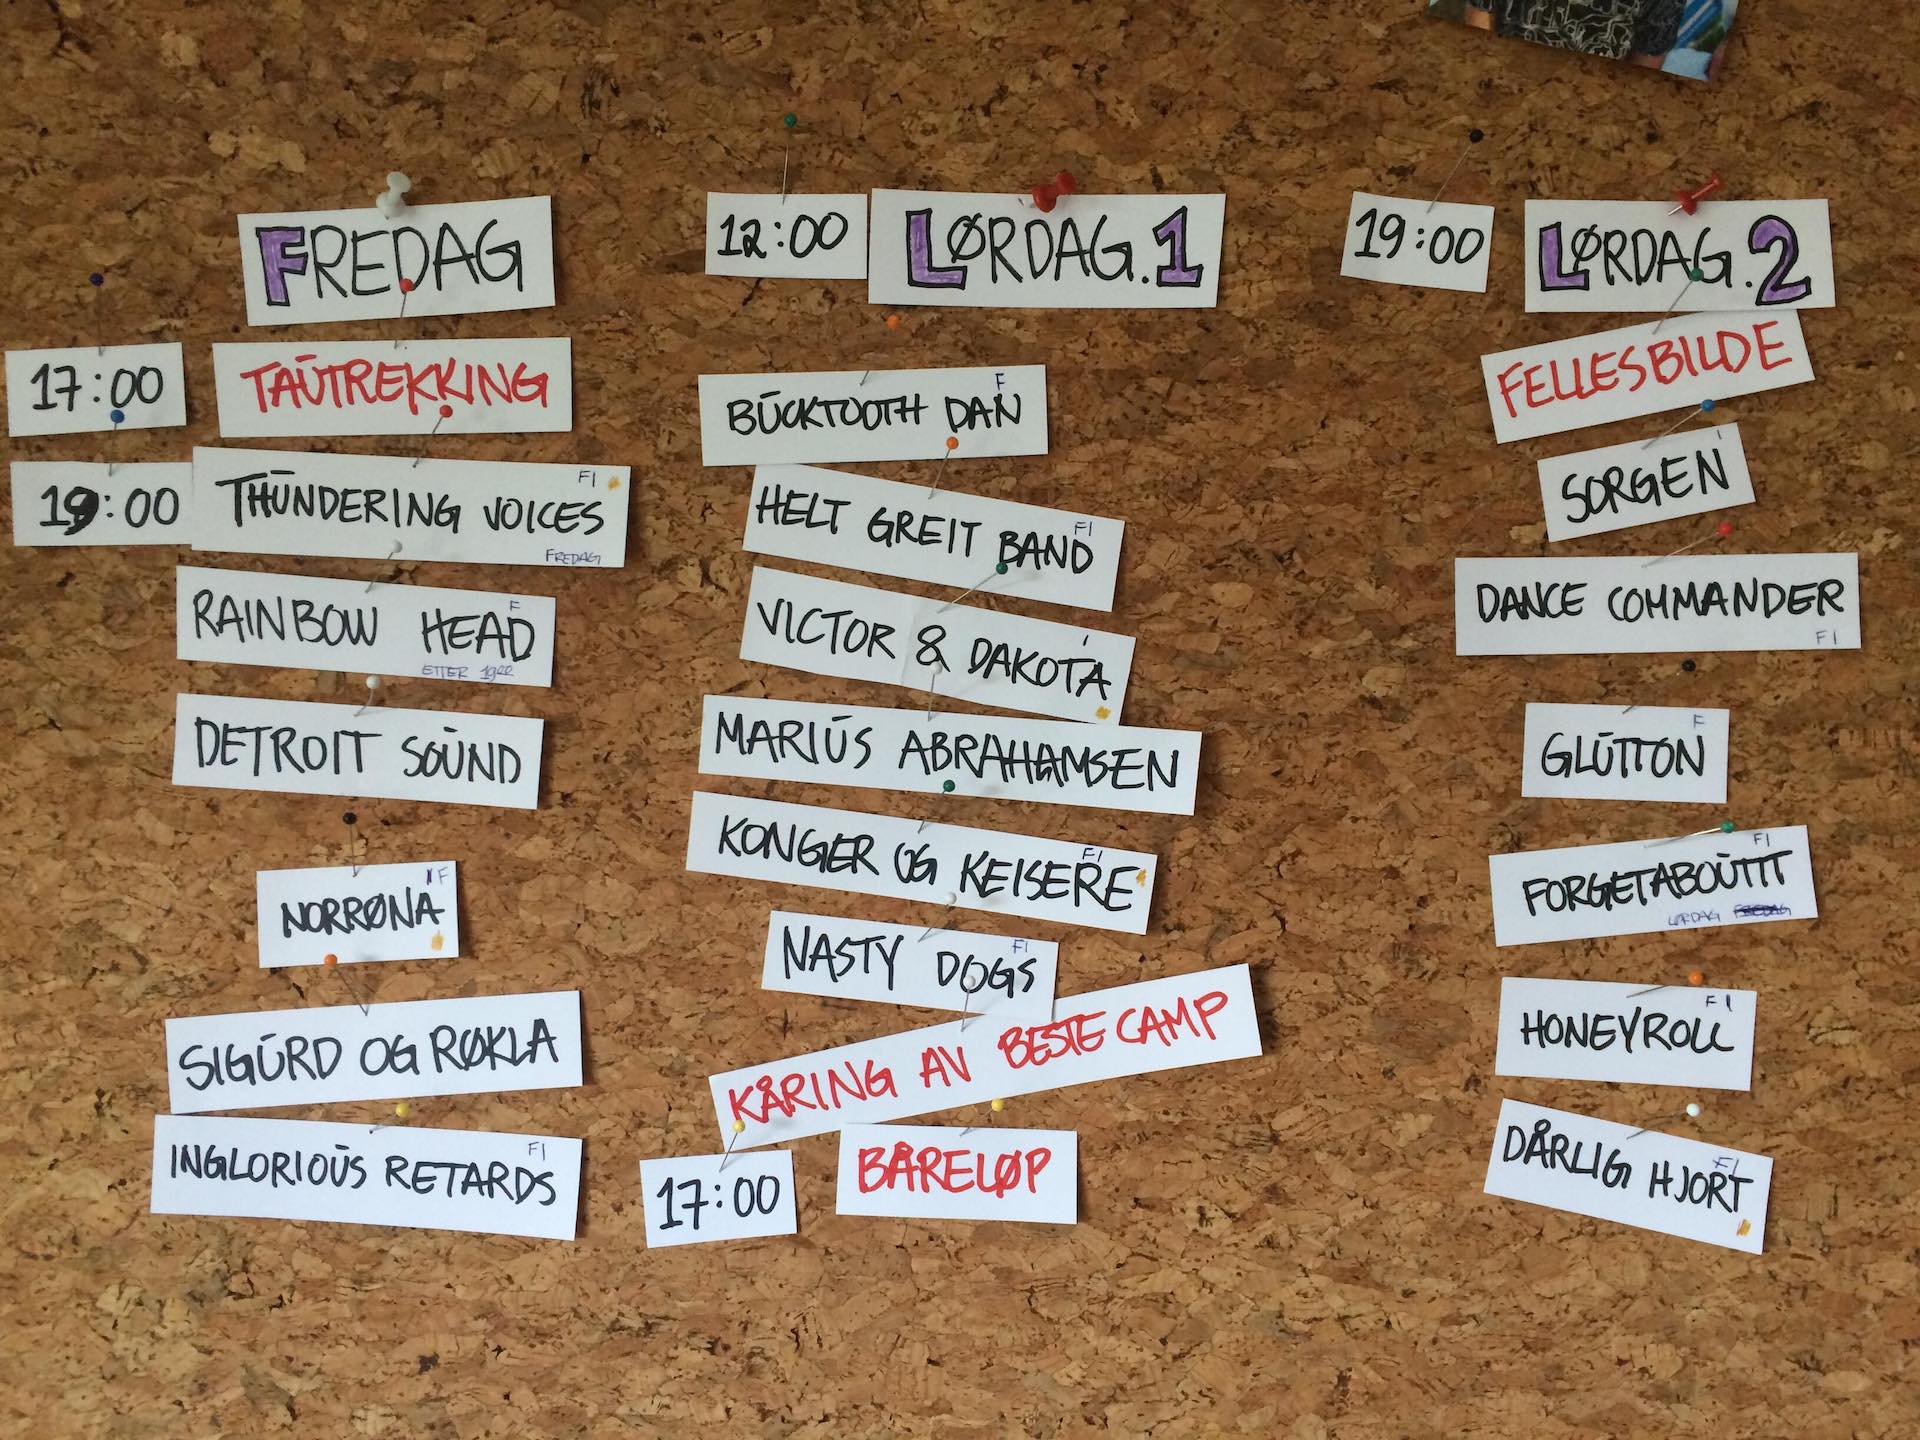 FREDAG
17:00 TAUTREKKING
19:00 THUNDERING VOICES FI
FREDAG
RAINBOW HEAD F
ETTER 1900
DETROIT SOUND
NORRØNA F
SIGURD OG RØKLA
INGLORIOUS RETARDS FI
12:00 LØRDAG.1
BUCKTOOTH DAN F
HELT GREIT BAND FI
VICTOR & DAKOTA
MARIUS ABRAHAMSEN
KONGER OG KEISERE FI
NASTY DOGS FI
KÅRING AV BESTE CAMP
17:00 BÅRELØP
19:00 LØRDAG.2
FELLESBILDE
SORGEN
DANCE COMMANDER
FI
GLUTTON F
FORGETABOUTTT FI
LØRDAG FREDAG
HONEYROLL FI
DÅRLIG HJORT FI